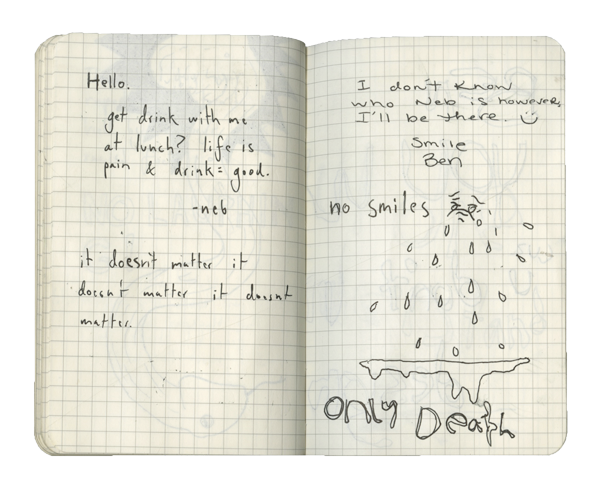 Hello.
get drink with me
at lunch? life is
pain & drink = good.
-neb
it doesn't matter it
doesn't matter it doesnt
matter.
I don't know
who Neb is however,
I'll be there.
Smile
Ben
no smiles
only Death